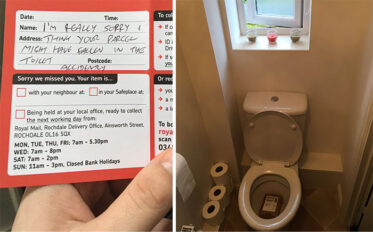 Date: Time:
Name: I'M REALLY SORRY I
Address: THINK YOUR PARCEL
MIGHT HAVE FALLEN IN THE
TOILET Postcode:
ACCIDENTLY
Sorry we missed you. Your item is...
with your neighbour at: in your Safeplace at:
Being held at your local office, ready to collect
the next working day from:
Royal Mail, Rochdale Delivery Office, Ainsworth Street,
ROCHDALE OL16 5QX
MON, TUE, THU, FRI: 7am - 5.30pm
WED: 7am - 8pm
SAT: 7am - 2pm
SUN: 11am - 3pm, Closed Bank Holidays
To col